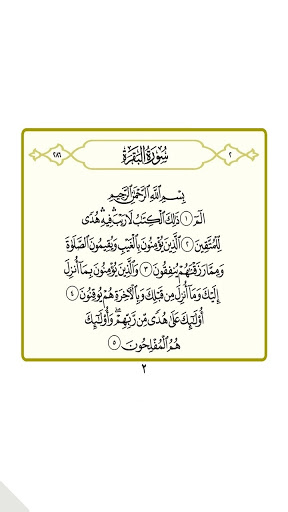 ٢ سُورَةُ البَقَرَةِ ٢٨٦
بِسْمِ اللَّهِ الرَّحْمَٰنِ الرَّحِيمِ
الٓمٓ ١ ذَٰلِكَ الْكِتَٰبُ لَا رَيْبَ ۛ فِيهِ ۛ هُدًى
لِّلْمُتَّقِينَ ٢ الَّذِينَ يُؤْمِنُونَ بِالْغَيْبِ وَيُقِيمُونَ الصَّلَوٰةَ
وَمِمَّا رَزَقْنَٰهُمْ يُنفِقُونَ ٣ وَالَّذِينَ يُؤْمِنُونَ بِمَآ أُنزِلَ
إِلَيْكَ وَمَآ أُنزِلَ مِن قَبْلِكَ وَبِالْآخِرَةِ هُمْ يُوقِنُونَ ٤
أُو۟لَٰٓئِكَ عَلَىٰ هُدًى مِّن رَّبِّهِمْ ۖ وَأُو۟لَٰٓئِكَ
هُمُ الْمُفْلِحُونَ ٥
٢